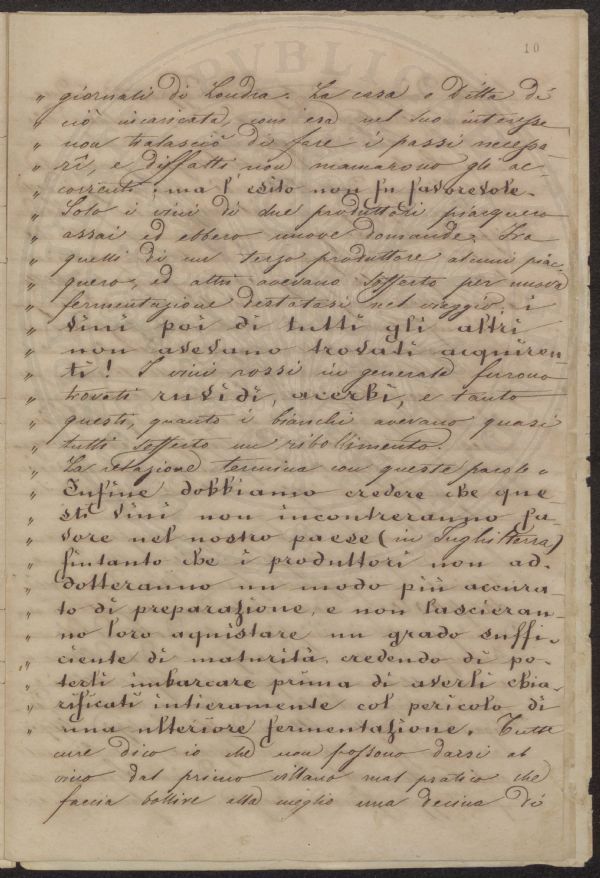 10
PVBLIC
" giornali di Londra. La casa o Ditta di
" ciò incaricata, com'era nel suo interesse
" non tralasciò di fare i passi necessa-
" rî, e diffatti non mancarono gli ac-
" correnti; ma l'esito non fu favorevole.
" Solo i vini di due produttori piacquero
" assai ed ebbero nuove domande. Tra
" quelli di un terzo produttore alcuni piac-
" quero, ed altri avevano sofferto per nuova
" fermentazione destatasi nel viaggio, i
" vini poi di tutti gli altri
" non avevano trovati acquiren-
" ti! I vini rossi in generale furono
" trovati ruvidi, acerbi, e tanto
" questi, quanto i bianchi avevano quasi
" tutti sofferto un ribollimento.
" La relazione termina con queste parole =
" Infine dobbiamo credere che que
" sti vini non incontreranno fa-
" vore nel nostro paese (in Inghilterra)
" fintanto che i produttori non ad-
" dotteranno un modo più accura-
" to di preparazione, e non lascieran-
" no loro aquistare un grado suffi-
" ciente di maturità, credendo di po-
" terli imbarcare prima di averli chia-
" rificati intieramente col pericolo di
" una ulteriore fermentazione. Tutte
cure dico io che non possono darsi al
vino dal primo villano mal pratico che
faccia bollire alla meglio una decina di